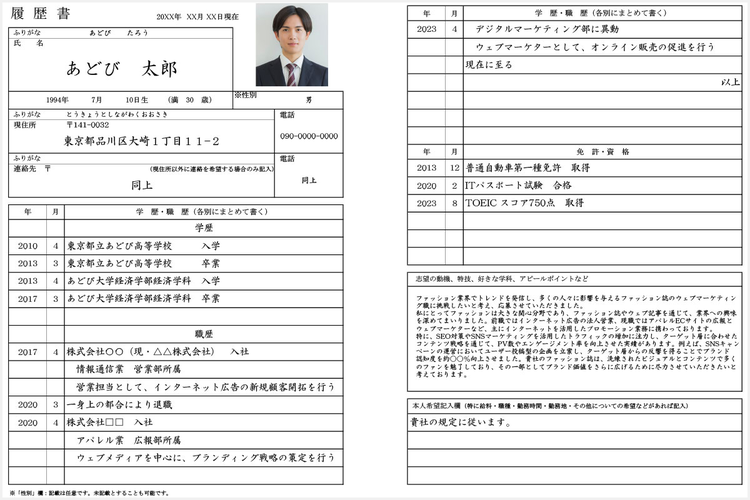 履 歴 書
20XX年 XX月 XX日現在
ふりがな あどび たろう
氏 名
あどび 太郎
1994年 7月 10日生 (満 30 歳)
※性別
男
ふりがな とうきょうとしながわくおおさき
現住所 〒141-0032
東京都品川区大崎１丁目１１−２
電話
090-0000-0000
ふりがな
連絡先 〒 (現住所以外に連絡を希望する場合のみ記入)
同上
電話
同上
年 月 学 歴・職 歴（各別にまとめて書く）
学歴
2010 4 東京都立あどび高等学校 入学
2013 3 東京都立あどび高等学校 卒業
2013 4 あどび大学経済学部経済学科 入学
2017 3 あどび大学経済学部経済学科 卒業
職歴
2017 4 株式会社〇〇（現・△△株式会社） 入社
情報通信業 営業部所属
営業担当として、インターネット広告の新規顧客開拓を行う
2020 3 一身上の都合により退職
2020 4 株式会社□□ 入社
アパレル業 広報部所属
ウェブメディアを中心に、ブランディング戦略の策定を行う
※「性別」欄：記載は任意です。未記載とすることも可能です。
年 月 学 歴・職 歴（各別にまとめて書く）
2023 4 デジタルマーケティング部に異動
ウェブマーケターとして、オンライン販売の促進を行う
現在に至る
以上
年 月 免 許・資 格
2013 12 普通自動車第一種免許 取得
2020 2 ITパスポート試験 合格
2023 8 TOEIC スコア750点 取得
志望の動機、特技、好きな学科、アピールポイントなど
ファッション業界でトレンドを発信し、多くの人々に影響を与えるファッション誌のウェブマーケティン
グ職に挑戦したいと考え、応募させていただきました。
私にとってファッションは大きな関心分野であり、ファッション誌やウェブ記事を通じて、業界への興味
を深めてまいりました。前職ではインターネット広告の法人営業、現職ではアパレルECサイトの広報と
ウェブマーケターなど、主にインターネットを活用したプロモーション業務に携わっております。
特に、SEO対策やSNSマーケティングを活用したトラフィックの増加に注力し、ターゲット層に合わせた
コンテンツ戦略を通じて、PV数やエンゲージメント率を向上させた実績があります。例えば、SNSキャン
ペーンの運営においてユーザー投稿型の企画を立案し、ターゲット層からの反響を得ることでブランド
認知度を約〇〇％向上させました。貴社のファッション誌は、洗練されたビジュアルとコンテンツで多く
のファンを魅了しており、その一部としてブランド価値をさらに広げるために尽力させていただきたいと
考えております。
本人希望記入欄（特に給料・職種・勤務時間・勤務地・その他についての希望などがあれば記入）
貴社の規定に従います。